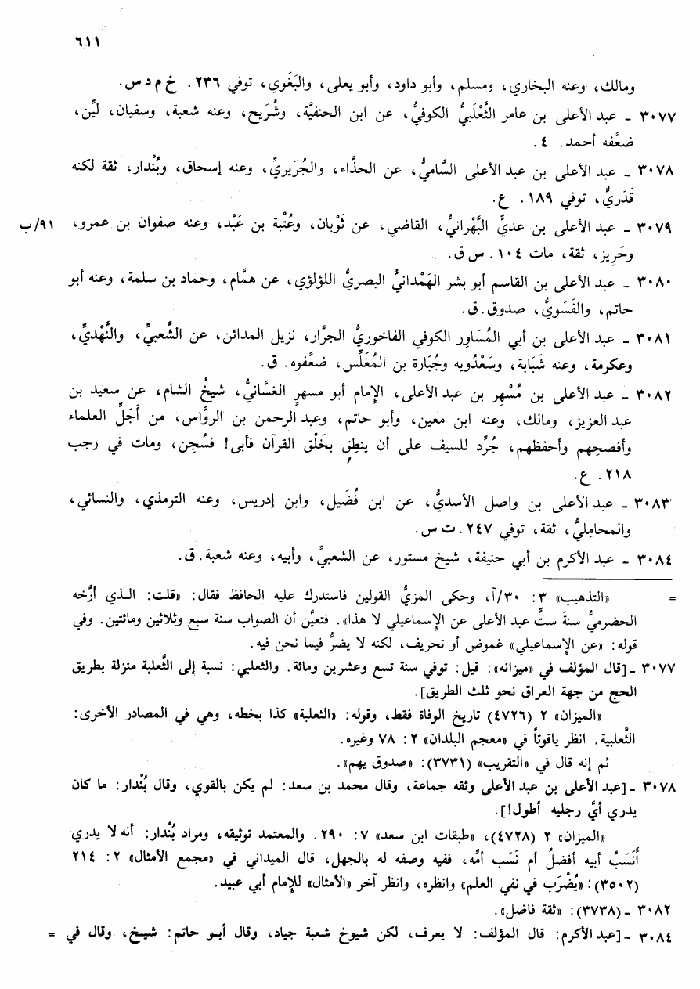 ٦١١
ومالك، وعنه البخاري، ومسلم، وأبو داود، وأبو يعلى، والبَغَوي، توفي ٢٣٦. خ م د س.
٣٠٧٧ ـ عبد الأعلى بن عامر الثَّعْلَبيُّ الكوفيُّ، عن ابن الحنفيَّة، وشُرَيح، وعنه شعبة، وسفيان، ليِّن،
ضعَّفه أحمد. ٤.
٣٠٧٨ ـ عبد الأعلى بن عبد الأعلى السَّاميُّ، عن الحذَّاء، والجُرَيريِّ، وعنه إسحاق، وبُنْدار، ثقة لكنه
قَدَريٌّ، توفي ١٨٩. ع.
٣٠٧٩ ـ عبد الأعلى بن عديٍّ البَهْرانيُّ، القاضي، عن ثَوْبان، وعُتْبة بن عَبْد، وعنه صفوان بن عمرو، ٩١/ب
وحَريز، ثقة، مات ١٠٤. س ق.
٣٠٨٠ ـ عبد الأعلى بن القاسم أبو بشر الهَمْدانيُّ البصريُّ اللؤلؤي، عن همَّام، وحماد بن سلمة، وعنه أبو
حاتم، والفَسَويُّ، صدوق. ق.
٣٠٨١ ـ عبد الأعلى بن أبي المُسَاوِر الكوفي الفاخوريُّ الجرَّار، نزيل المدائن، عن الشَّعبيِّ، والنَّهْديِّ،
وعكرمة، وعنه شَبَابة، وسَعْدويه وجُبَارة بن المُغَلِّس، ضعَّفوه. ق.
٣٠٨٢ ـ عبد الأعلى بن مُسْهِر بن عبد الأعلى، الإمام أبو مسهر الغسَّانيُّ، شيخُ الشام، عن سعيد بن
عبد العزيز، ومالك، وعنه ابن معين، وأبو حاتم، وعبد الرحمن بن الروَّاس، من أَجَلِّ العلماء
وأفصحهم وأحفظهم، جُرِّد للسيف على أن ينطِق بخَلْق القرآن فأبى! فسُجن، ومات في رجب
٢١٨. ع.
٣٠٨٣ ـ عبد الأعلى بن واصل الأسديُّ، عن ابن فُضَيل، وابن إدريس، وعنه الترمذي، والنسائي،
والمحامليُّ، ثقة، توفي ٢٤٧. ت س.
٣٠٨٤ ـ عبد الأكرم بن أبي حنيفة، شيخ مستور، عن الشعبيِّ، وأبيه، وعنه شعبة. ق.
= «التذهيب» ٣: ٣٠/آ، وحكى المزيُّ القولين فاستدرك عليه الحافظ فقال: «قلت: الـذي أرَّخه
الحضرميُّ سنة ستٍّ عبد الأعلى عن الإسماعيلي لا هذا». فتعيَّن أن الصواب سنة سبع وثلاثين ومائتين. وفي
قوله: «عن الإسماعيلي» غموض أو تحريف، لكنه لا يضرُّ فيما نحن فيه.
٣٠٧٧ ـ [قال المؤلف في «ميزانه»: قيل: توفي سنة تسع وعشرين ومائة. والثعلبي: نسبة إلى الثَّعلبة منزلة بطريق
الحج من جهة العراق نحو ثلث الطريق].
«الميزان» ٢ (٤٧٢٦) تاريخ الوفاة فقط، وقوله: «الثعلبة» كذا بخطه، وهي في المصادر الأخرى:
الثَّعلبية. انظر ياقوتاً في «معجم البلدان» ٢: ٧٨ وغيره.
ثم إنه قال في «التقريب» (٣٧٣١): «صدوق يهم».
٣٠٧٨ ـ [عبد الأعلى بن عبد الأعلى وثقه جماعة، وقال محمد بن سعد: لم يكن بالقوي، وقال بُنْدار: ما كان
يدري أيُّ رجليه أطول!].
«الميزان» ٢ (٤٧٢٨)، «طبقات ابن سعد» ٧: ٢٩٠. والمعتمد توثيقه، ومراد بُنْدار: أنه لا يدري
أَنَسَبُ أبيه أفضلُ أم نَسَب أمِّه، ففيه وصفه له بالجهل، قال الميداني في «مجمع الأمثال» ٢: ٢١٤
(٣٥٠٢): «يُضْرَب في نفي العلم» وانظره، وانظر آخر «الأمثال» للإمام أبي عبيد.
٣٠٨٢ ـ (٣٧٣٨): «ثقة فاضل».
٣٠٨٤ ـ [عبد الأكرم: قال المؤلف: لا يعرف، لكن شيوخ شعبة جياد، وقال أبـو حاتم: شيـخ، وقال في =